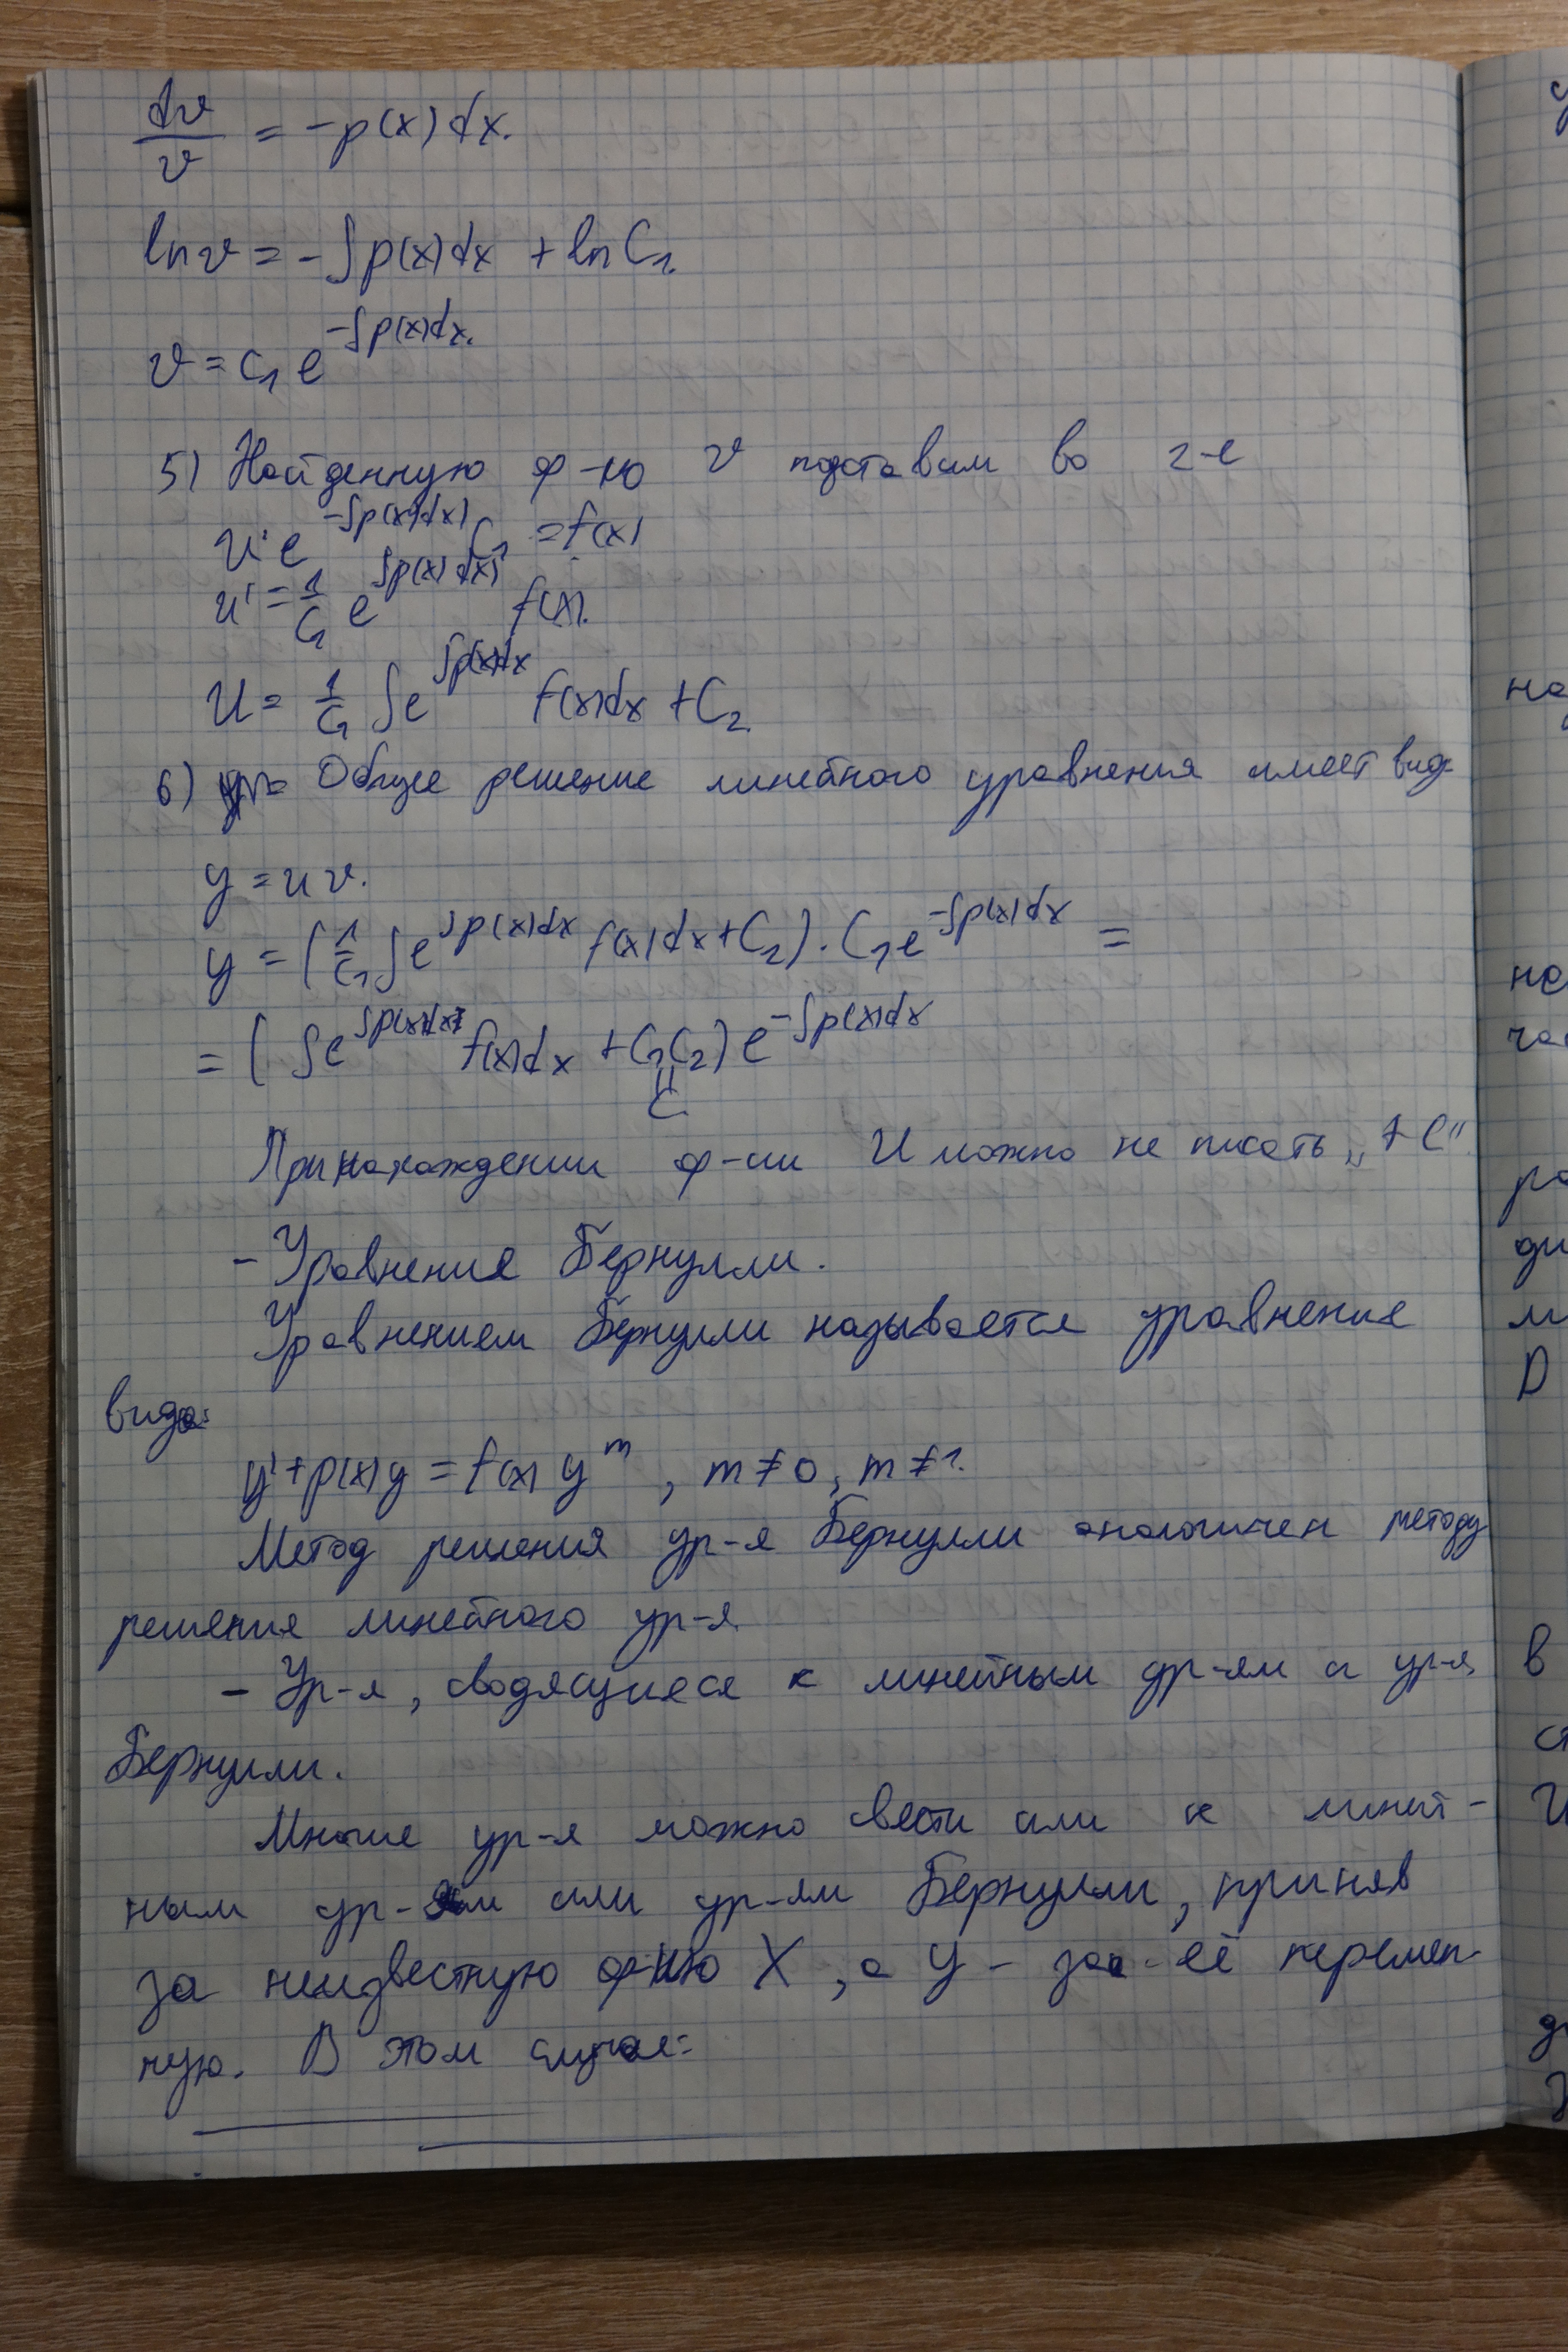 dv/v = -p(x)dx.
ln v = -∫p(x)dx + ln C₁.
v = C₁ e^(-∫p(x)dx).
5) Найденную ф-ю v подставим во 2-е
u' e^(-∫p(x)dx) C₁ = f(x)
u' = 1/C₁ e^(∫p(x)dx) f(x).
u = 1/C₁ ∫e^(∫p(x)dx) f(x)dx + C₂.
6) Общее решение линейного уравнения имеет вид:
y = uv.
y = (1/C₁ ∫e^(∫p(x)dx) f(x)dx + C₂) · C₁e^(-∫p(x)dx) =
= (∫e^(∫p(x)dx) f(x)dx + C₁C₂) e^(-∫p(x)dx)
=
C
При нахождении ф-ии U можно не писать „+C“
- Уравнения Бернулли.
Уравнением Бернулли называется уравнение
вида:
y' + p(x)y = f(x) y^m, m≠0, m≠1.
Метод решения ур-я Бернулли аналогичен методу
решения линейного ур-я.
- Ур-я, сводящиеся к линейным ур-ям и ур-я
Бернулли.
Многие ур-я можно свести или к линей-
ным ур-ям или ур-ям Бернулли, приняв
за неизвестную ф-ию X, а y - за её перемен-
ную. В этом случае: